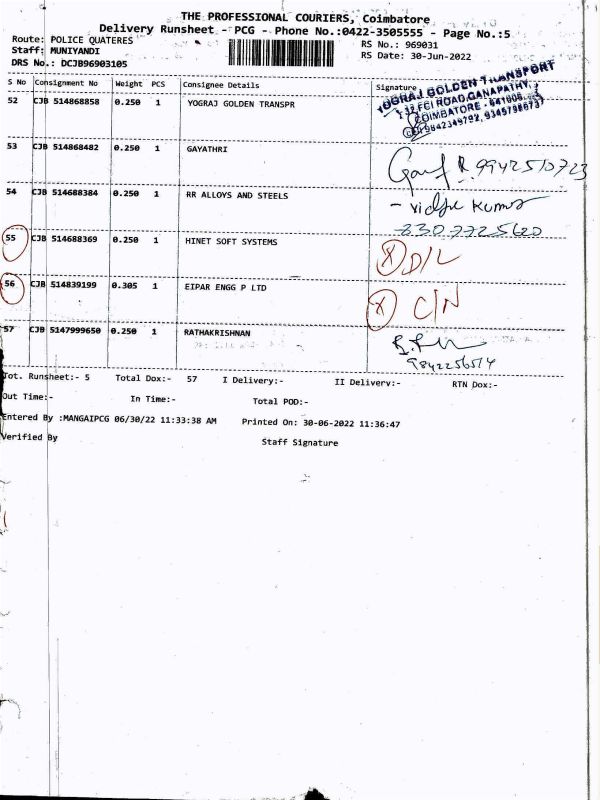 THE PROFESSIONAL COURIERS, Coimbatore
Delivery Runsheet - PCG - Phone No.:0422-3505555 - Page No.:5
Route: POLICE QUATERES
Staff: MUNIYANDI
DRS No.: DCJB96903105
RS No.: 969031
RS Date: 30-Jun-2022
S No Consignment No Weight PCS Consignee Details Signature
52 CJB 514868858 0.250 1 YOGRAJ GOLDEN TRANSPR
YOGRAJ GOLDEN TRANSPORT
FCI ROAD, GANAPATHY,
COIMBATORE - 641006
53 CJB 514868482 0.250 1 GAYATHRI
54 CJB 514688384 0.250 1 RR ALLOYS AND STEELS
Kumar
55 CJB 514688369 0.250 1 HINET SOFT SYSTEMS
X D/L
56 CJB 514839199 0.305 1 EIPAR ENGG P LTD
X C/N
57 CJB 5147999650 0.250 1 RATHAKRISHNAN
9842256514
Tot. Runsheet:- 5 Total Dox:- 57 I Delivery:- II Delivery:- RTN Dox:-
Out Time:- In Time:- Total POD:-
Entered By :MANGAIPCG 06/30/22 11:33:38 AM Printed On: 30-06-2022 11:36:47
Verified By Staff Signature